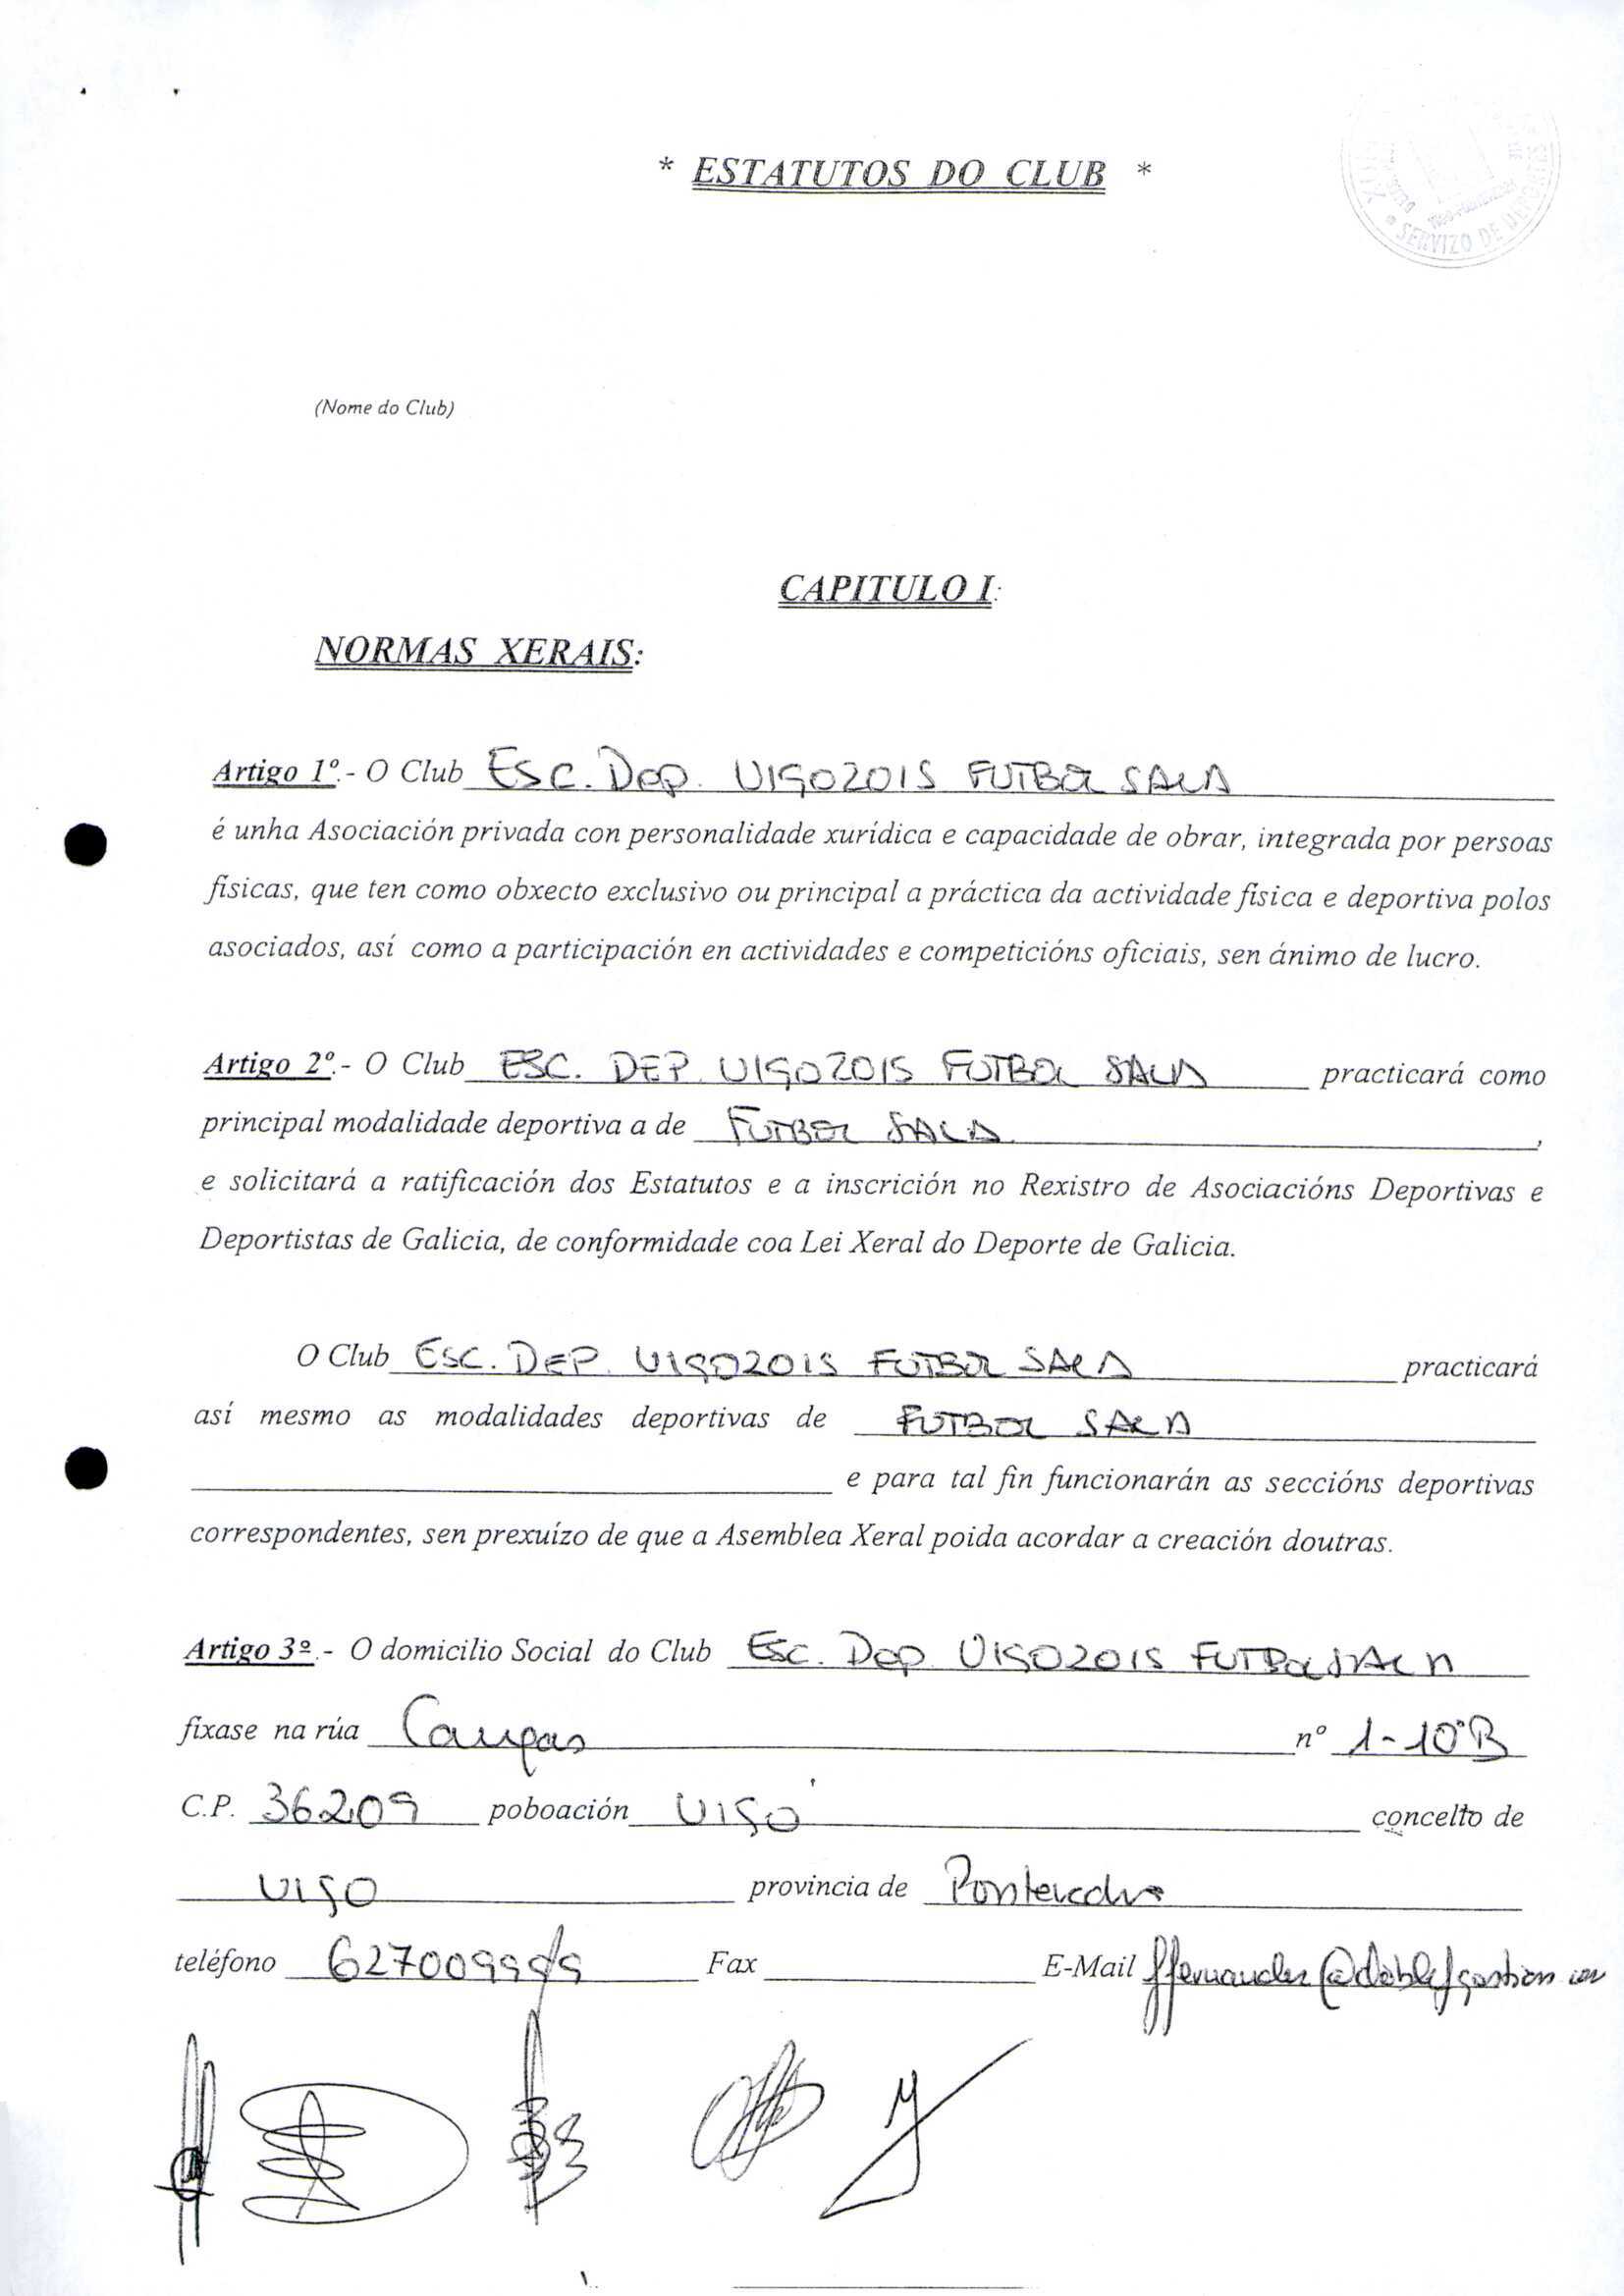 * ESTATUTOS DO CLUB *
SERVIZO DE DEPORTES
(Nome do Club)
CAPITULO I:
NORMAS XERAIS:
Artigo 1º.- O Club ESC. Dep. VIGO2015 FUTBOL SALA
é unha Asociación privada con personalidade xurídica e capacidade de obrar, integrada por persoas
físicas, que ten como obxecto exclusivo ou principal a práctica da actividade física e deportiva polos
asociados, así como a participación en actividades e competicións oficiais, sen ánimo de lucro.
Artigo 2º.- O Club ESC. DEP. VIGO2015 FUTBOL SALA practicará como
principal modalidade deportiva a de FUTBOL SALA,
e solicitará a ratificación dos Estatutos e a inscrición no Rexistro de Asociacións Deportivas e
Deportistas de Galicia, de conformidade coa Lei Xeral do Deporte de Galicia.
O Club ESC. DEP. VIGO2015 FUTBOL SALA practicará
así mesmo as modalidades deportivas de FUTBOL SALA
e para tal fin funcionarán as seccións deportivas
correspondentes, sen prexuízo de que a Asemblea Xeral poida acordar a creación doutras.
Artigo 3º.- O domicilio Social do Club Esc. Dep. VIGO2015 FUTBOL SALA
fíxase na rúa nº 1-10ºB
C.P. 36209 poboación VIGO concello de
VIGO provincia de Pontevedra
teléfono Fax E-Mail